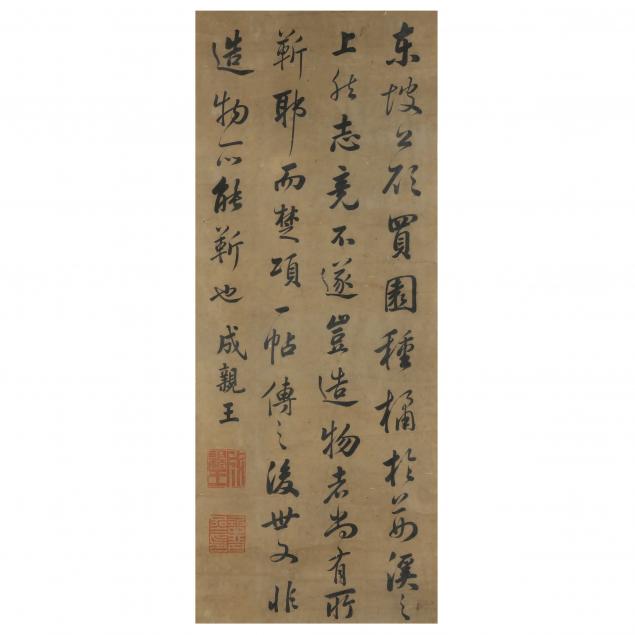 東坡公欲買園種橘於荊溪之
上然志竟不遂豈造物者尚有所
靳耶而楚頌一帖傳之後世又非
造物所能靳也成親王